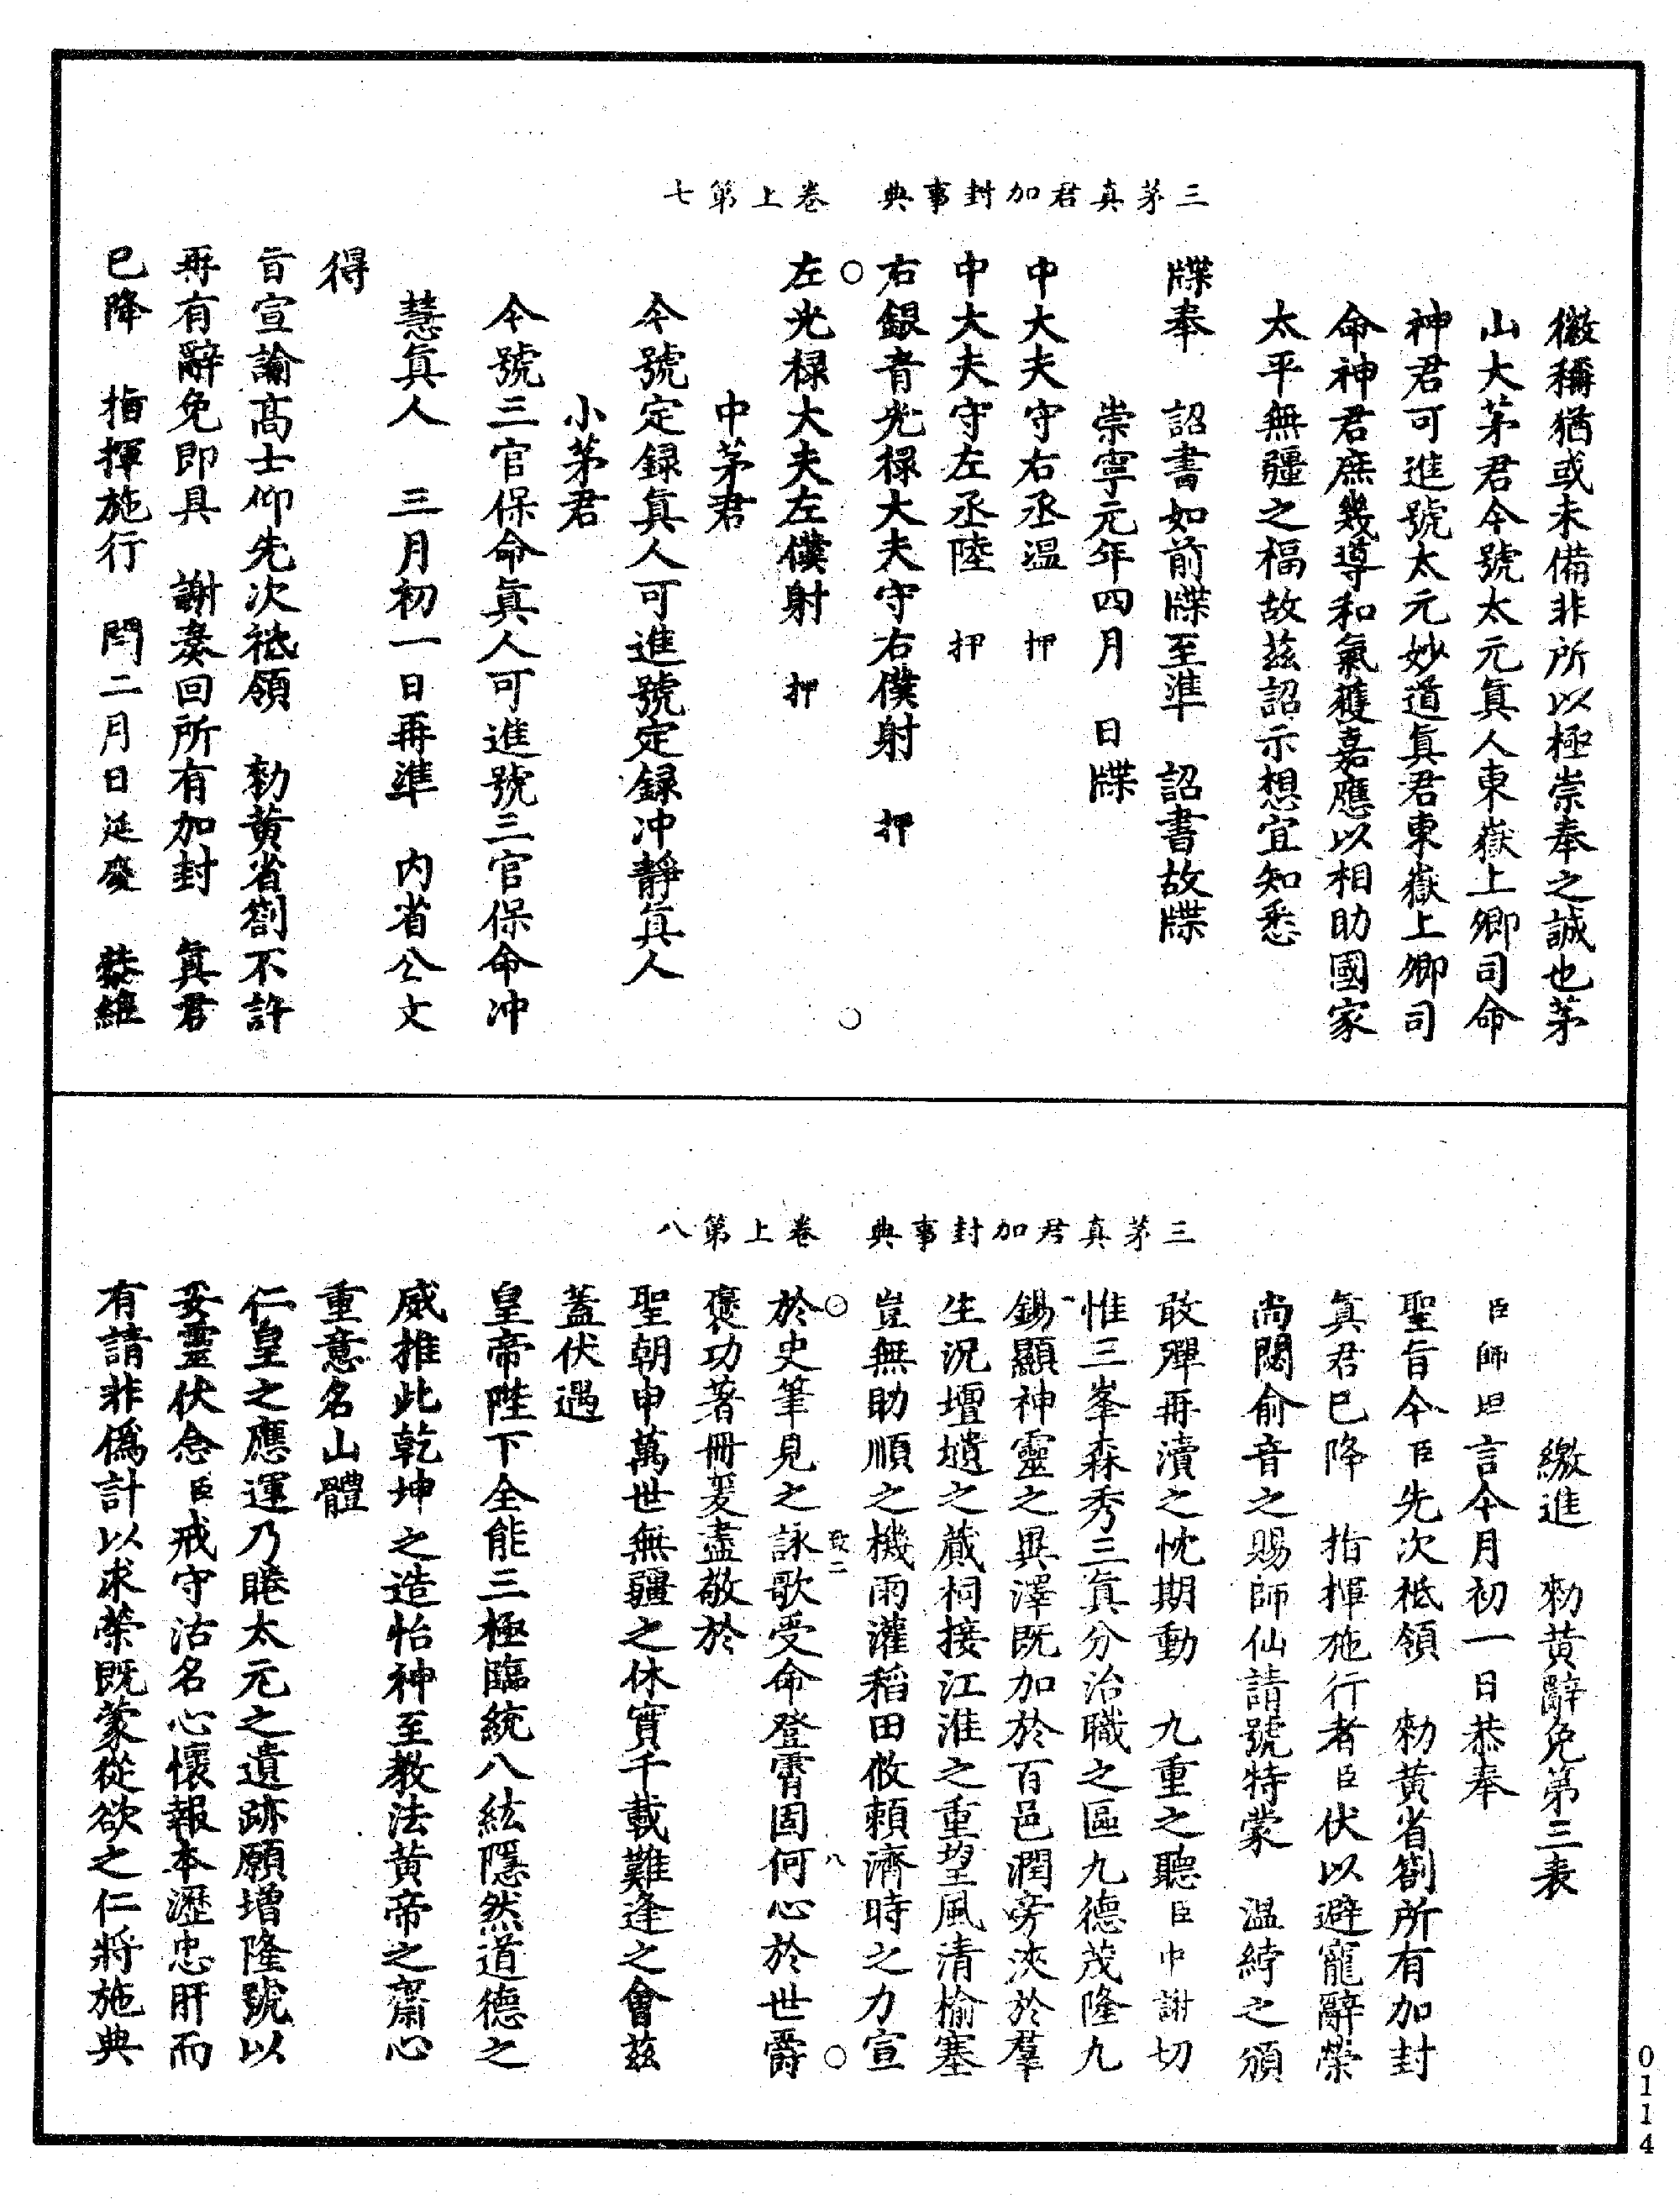 三茅真君加封事典　卷上第七
徽稱猶或未備非所以極崇奉之誠也茅
山大茅君今號太元真人東嶽上卿司命
神君可進號太元妙道真君東嶽上卿司
命神君庶幾導和氣獲嘉應以相助國家
太平無疆之福故茲詔示想宜知悉
牒奉　詔書如前牒至準　詔書故牒
崇寧元年四月　日牒
中大夫守右丞溫　押
中大夫守左丞陸　押
右銀青光祿大夫守右僕射　押
左光祿大夫左僕射　押
中茅君
今號定録真人可進號定録冲靜真人
小茅君
今號三官保命真人可進號三官保命冲
慧真人　三月初一日再準　內省公文
得
旨宣諭高士仰先次祗領　勑黃省劄不許
再有辭免即具　謝奏回所有加封　真君
已降　指揮施行　閏二月日延慶　恭維
三茅真君加封事典　卷上第八
繳進　勑黃辭免第三表
臣師坦言今月初一日恭奉
聖旨今臣先次祗領　勑黃省劄所有加封
真君已降　指揮施行者臣伏以避寵辭榮
尚閟俞音之賜師仙請號特蒙　溫綍之頒
敢殫再瀆之忱期動　九重之聽臣中謝切
惟三峯森秀三真分治職之區九德茂隆九
錫顯神靈之異澤既加於百邑潤旁浹於羣
生況壇壝之蕆祠接江淮之重望風清榆塞
豈無助順之機雨灌稻田攸賴濟時之力宣
於史筆見之詠歌受命登霄固何心於世爵
致二
八
褒功著冊爰盡敬於
聖朝申萬世無疆之休實千載難逢之會茲
蓋伏遇
皇帝陛下全能三極臨統八紘隱然道德之
威推此乾坤之造怡神至教法黃帝之齋心
重意名山體
仁皇之應運乃睠太元之遺跡願增隆號以
妥靈伏念臣戒守沽名心懷報本瀝忠肝而
有請非僞計以求榮既蒙從欲之仁將施典
0114